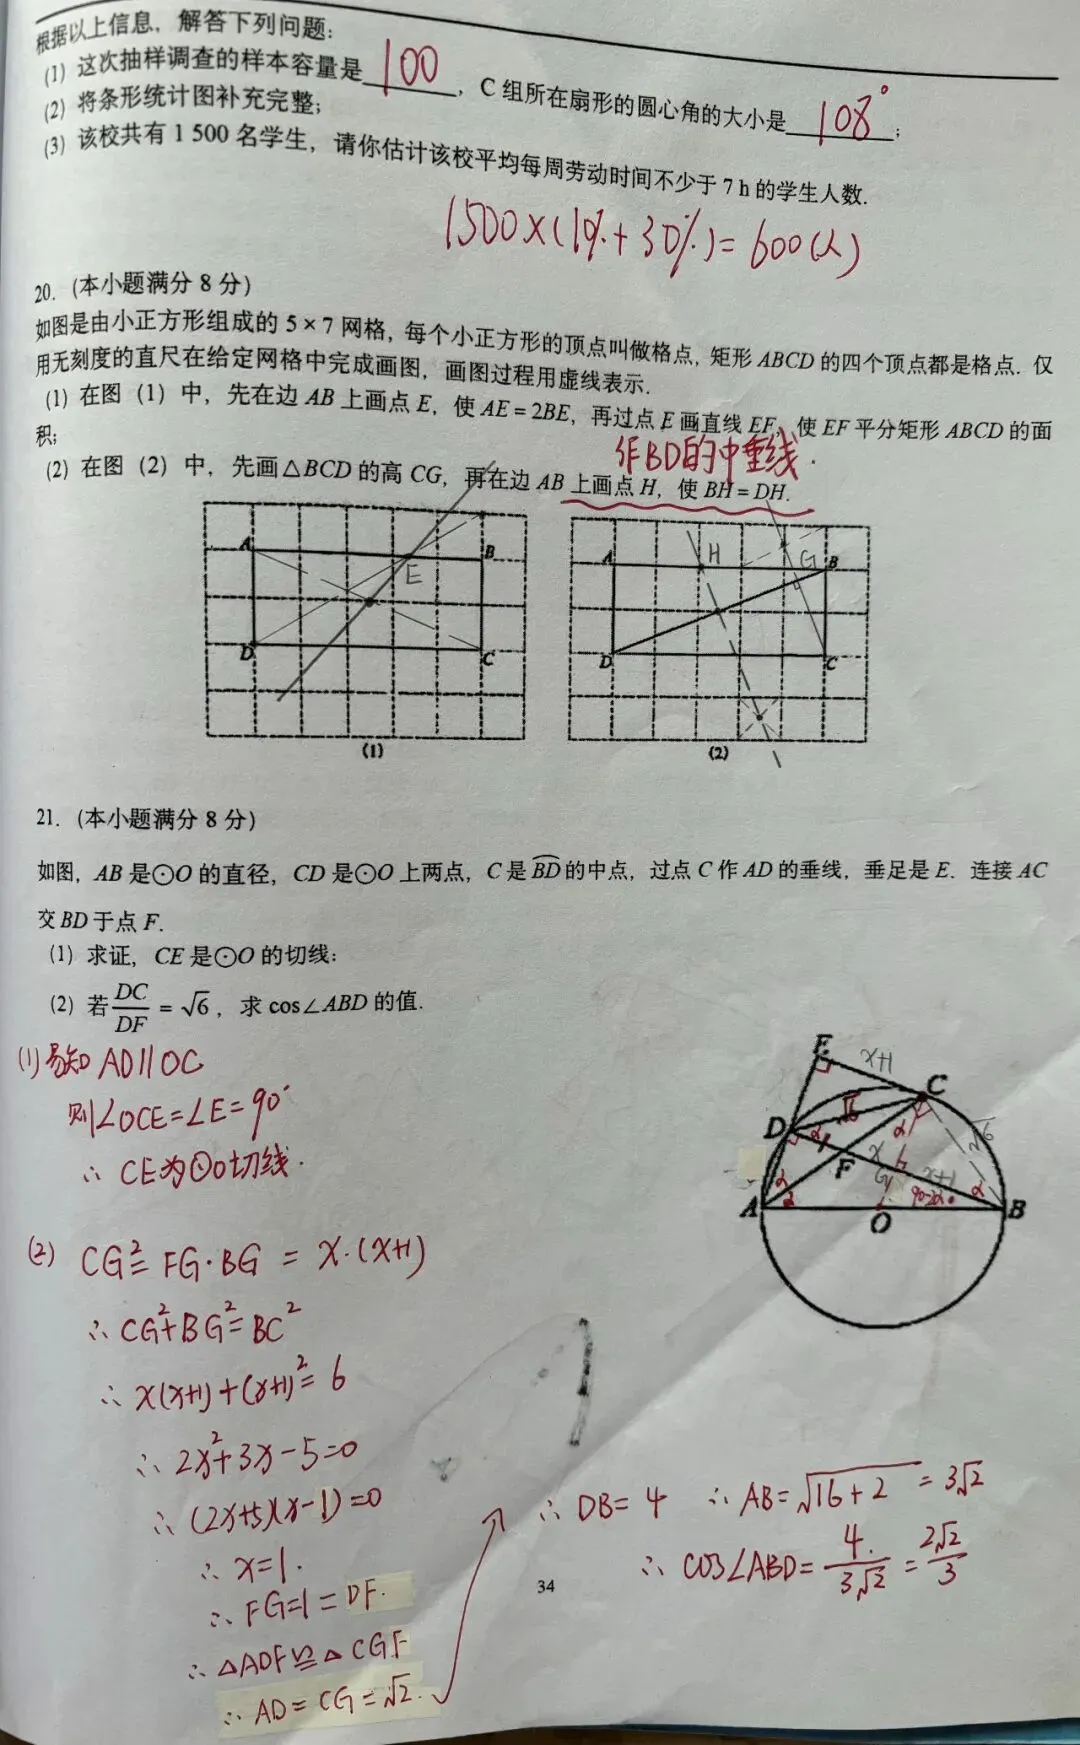 根据以上信息，解答下列问题：
(1) 这次抽样调查的样本容量是 100 ，C 组所在扇形的圆心角的大小是 108° ；
(2) 将条形统计图补充完整；
(3) 该校共有 1 500 名学生，请你估计该校平均每周劳动时间不少于 7 h 的学生人数.
1500×(10%+30%)=600(人)
20. (本小题满分 8 分)
如图是由小正方形组成的 5×7 网格，每个小正方形的顶点叫做格点，矩形 ABCD 的四个顶点都是格点. 仅
用无刻度的直尺在给定网格中完成画图，画图过程用虚线表示.
(1) 在图（1）中，先在边 AB 上画点 E，使 AE=2BE，再过点 E 画直线 EF，使 EF 平分矩形 ABCD 的面
积；
作BD的中垂线.
(2) 在图（2）中，先画△BCD 的高 CG，再在边 AB 上画点 H，使 BH=DH.
A B E D C
(1)
A H G B D C
(2)
21. (本小题满分 8 分)
如图，AB 是⊙O 的直径，CD 是⊙O 上两点，C 是BD的中点，过点 C 作 AD 的垂线，垂足是 E. 连接 AC
交 BD 于点 F.
(1) 求证，CE 是⊙O 的切线：
(2) 若DC/DF=√6，求 cos∠ABD 的值.
(1) 易知 AD∥OC
则∠OCE=∠E=90°
∴ CE为⊙O切线.
E x+1 C
D √6 α √6
α 1 F x G x+1
α α 90-2α α
A O B
(2) CG²=FG·BG=x·(x+1)
∴ CG²+BG²=BC²
∴ x(x+1)+(x+1)²=6
∴ 2x²+3x-5=0
∴ (2x+5)(x-1)=0
∴ x=1.
∴ FG=1=DF.
∴ △ADF≌△CGF
∴ AD=CG=√2.
∴ DB=4 ∴ AB=√16+2=3√2
∴ cos∠ABD=4/3√2=2√2/3
34